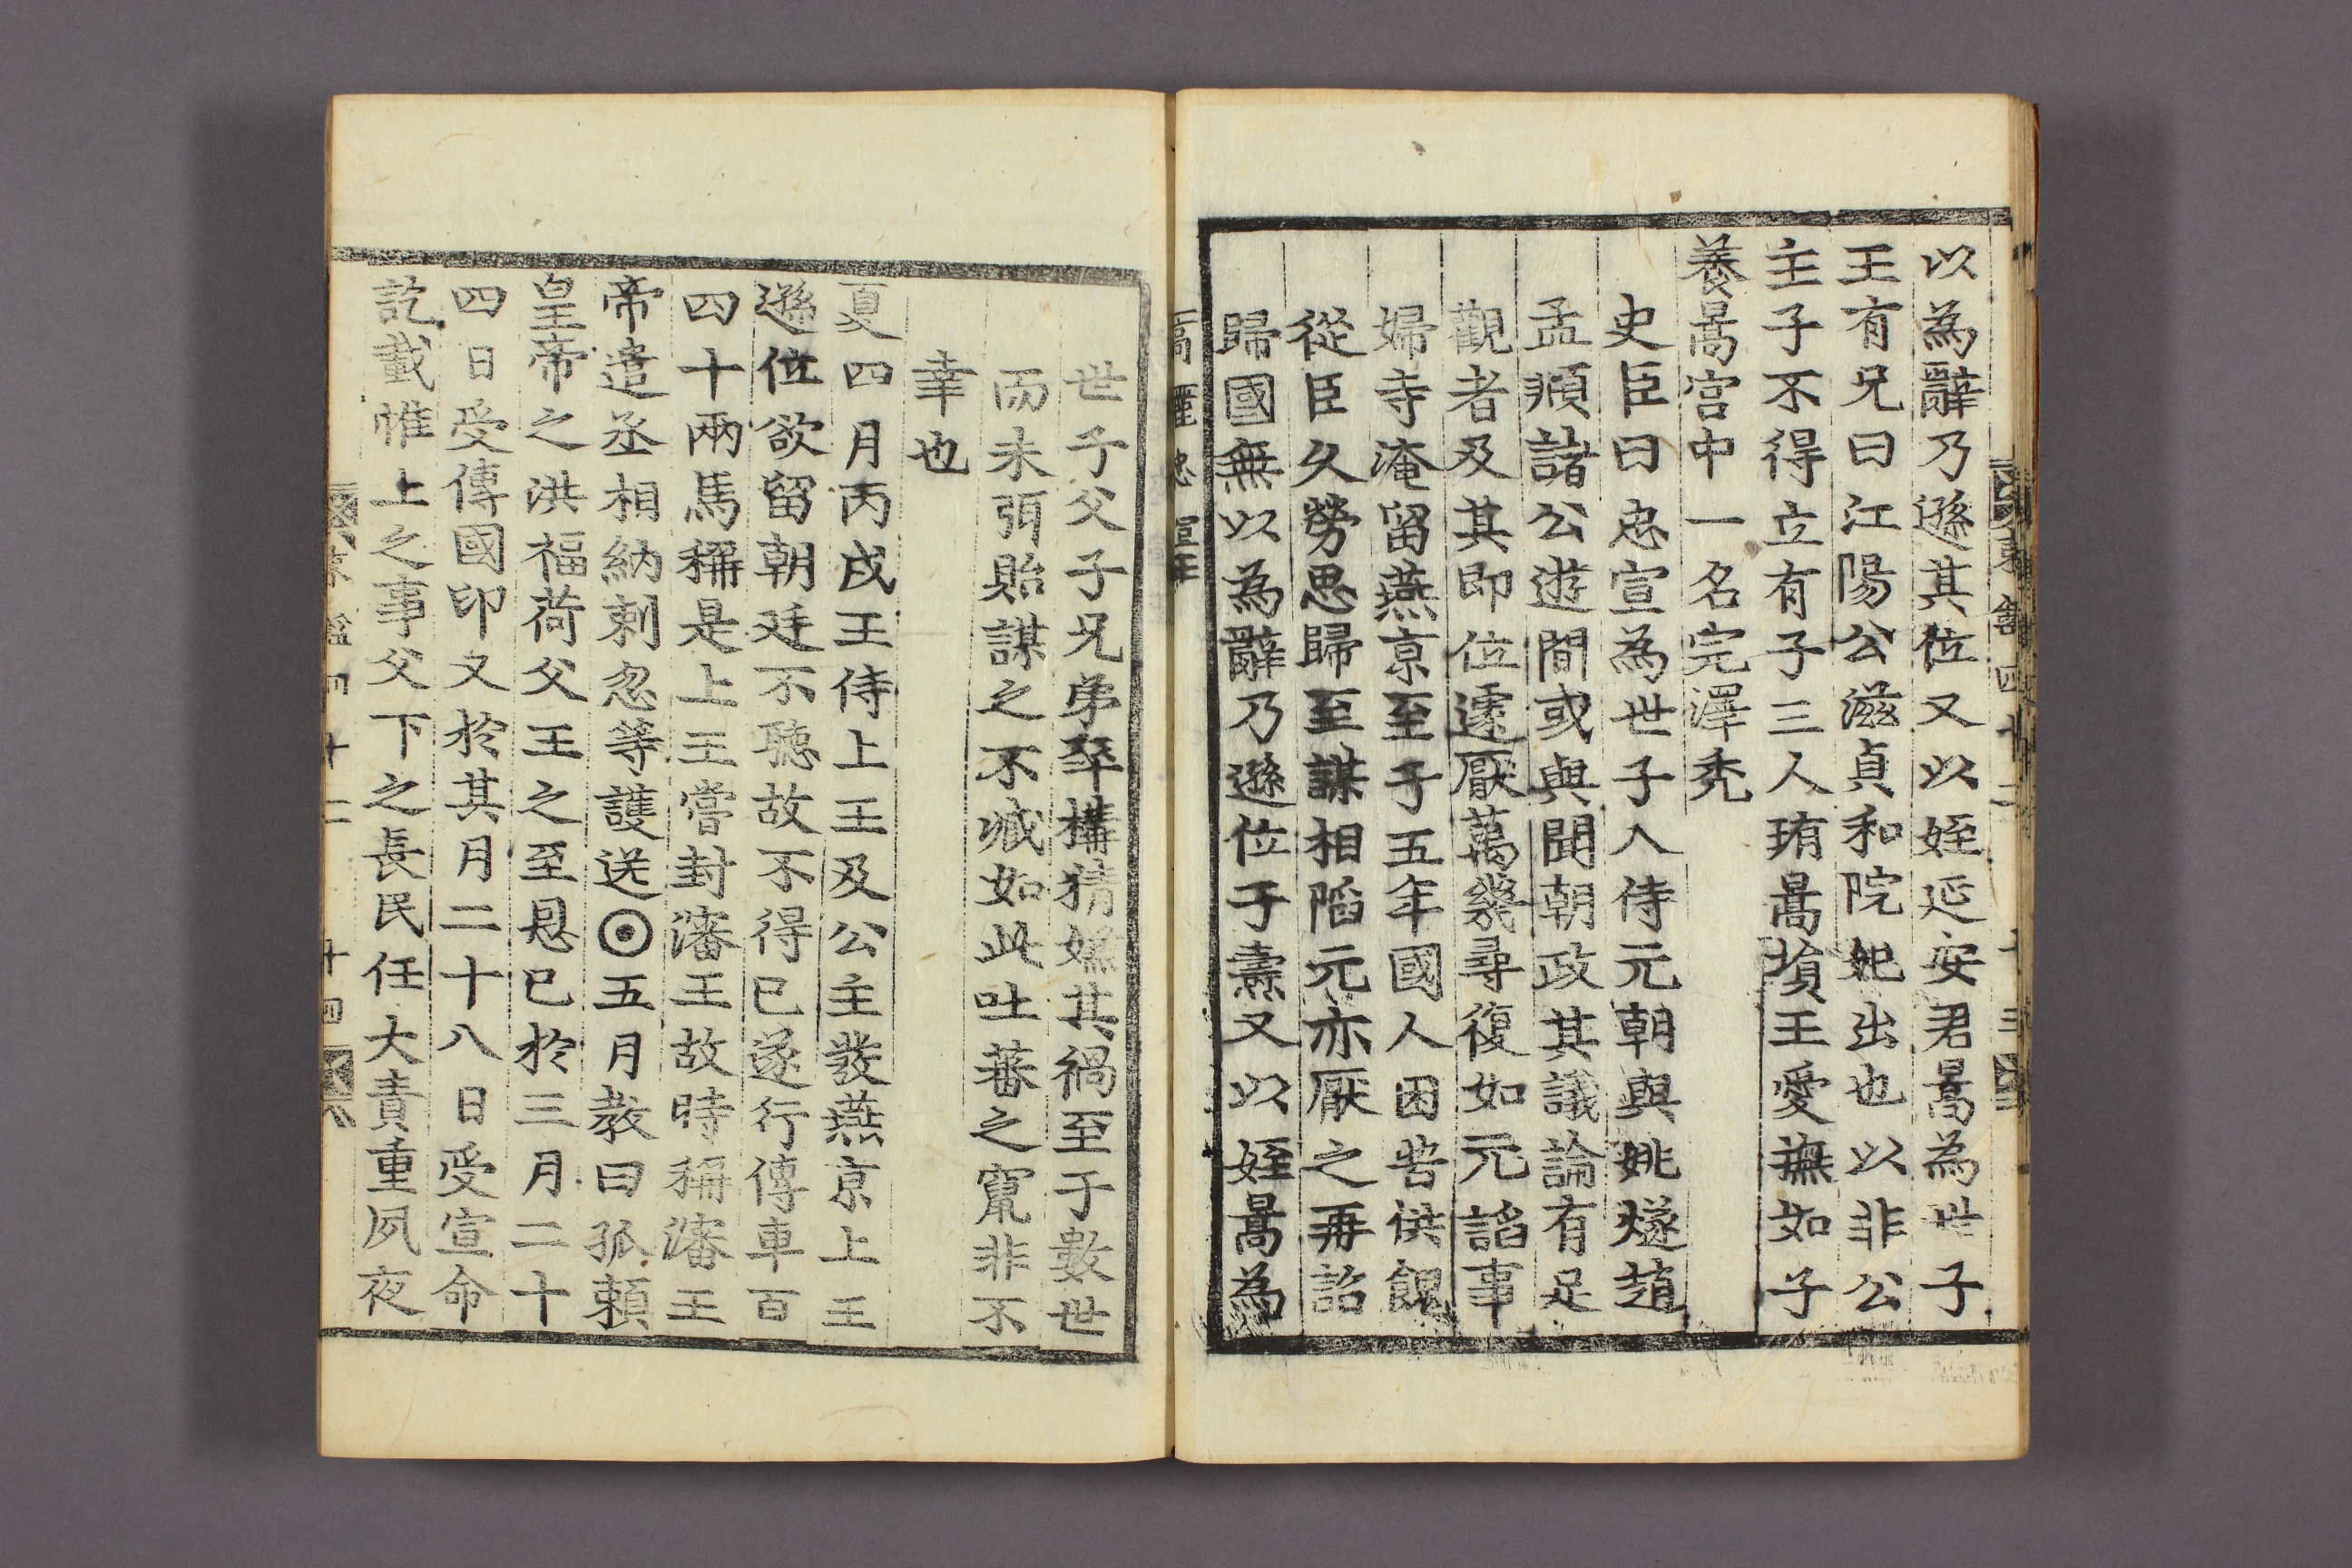 以為辭乃遜其位又以姪延安君暠為世子
王有兄曰江陽公滋貞和院妃出也以非公
主子不得立有子三人珛暠塤王愛撫如子
養暠宮中一名完澤禿
史臣曰忠宣為世子入侍元朝與姚燧趙
孟頫諸公遊間或與聞朝政其議論有足
觀者及其即位遽厭萬幾尋復如元諂事
婦寺淹留燕京至于五年國人困苦供餽
從臣久勞思歸至謀相陷元亦厭之再詔
歸國無以為辭乃遜位于燾又以姪暠為
忠宣王
世子父子兄弟卒構猜嫌其禍至于數世
而未弭貽謀之不臧如此吐蕃之竄非不
幸也
夏四月丙戌王侍上王及公主發燕京上王
遜位欲留朝廷不聽故不得已遂行傳車百
四十兩馬稱是上王嘗封瀋王故時稱瀋王
帝遣丞相納剌忽等護送◎五月教曰孤賴
皇帝之洪福荷父王之至恩已於三月二十
四日受傳國印又於其月二十八日受宣命
訖載惟上之事父下之長民任大責重夙夜